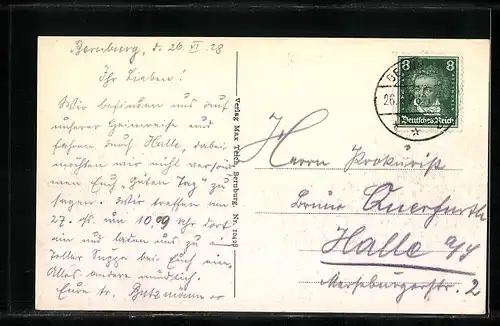 Bernburg, d. 26. VI. 28
Ihr Lieben!
Wir befinden uns auf
unserer Heimreise und
fahren durch Halle, dabei
möchten wir nicht versäu-
men Euch "Guten Tag" zu
sagen. Wir treffen am
27. ds. um 10,09 Uhr dort
ein und laden uns zu ein
Teller Suppe bei Euch ein.
Alles andere mündlich.
Eure tr.
Verlag Max Teich, Bernburg. Nr.
8 8
Deutsches Reich
26.
Herrn Prokurist
Bruno Querfurth
Halle a/S
Merseburgerstr. 2